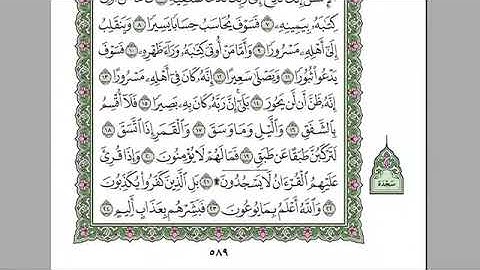 كِتَٰبَهُۥ بِيَمِينِهِۦ ٧ فَسَوْفَ يُحَاسَبُ حِسَابًا يَسِيرًا ٨ وَيَنقَلِبُ
إِلَىٰٓ أَهْلِهِۦ مَسْرُورًا ٩ وَأَمَّا مَنْ أُوتِيَ كِتَٰبَهُۥ وَرَآءَ ظَهْرِهِۦ ١٠ فَسَوْفَ
يَدْعُوا۟ ثُبُورًا ١١ وَيَصْلَىٰ سَعِيرًا ١٢ إِنَّهُۥ كَانَ فِىٓ أَهْلِهِۦ مَسْرُورًا ١٣
إِنَّهُۥ ظَنَّ أَن لَّن يَحُورَ ١٤ بَلَىٰٓ إِنَّ رَبَّهُۥ كَانَ بِهِۦ بَصِيرًا ١٥ فَلَآ أُقْسِمُ
بِٱلشَّفَقِ ١٦ وَٱلَّيْلِ وَمَا وَسَقَ ١٧ وَٱلْقَمَرِ إِذَا ٱتَّسَقَ ١٨
لَتَرْكَبُنَّ طَبَقًا عَن طَبَقٍ ١٩ فَمَا لَهُمْ لَا يُؤْمِنُونَ ٢٠ وَإِذَا قُرِئَ
عَلَيْهِمُ ٱلْقُرْءَانُ لَا يَسْجُدُونَ ۩ ٢١ بَلِ ٱلَّذِينَ كَفَرُوا۟ يُكَذِّبُونَ
٢٢ وَٱللَّهُ أَعْلَمُ بِمَا يُوعُونَ ٢٣ فَبَشِّرْهُم بِعَذَابٍ أَلِيمٍ ٢٤
سَجْدَة
٥٨٩